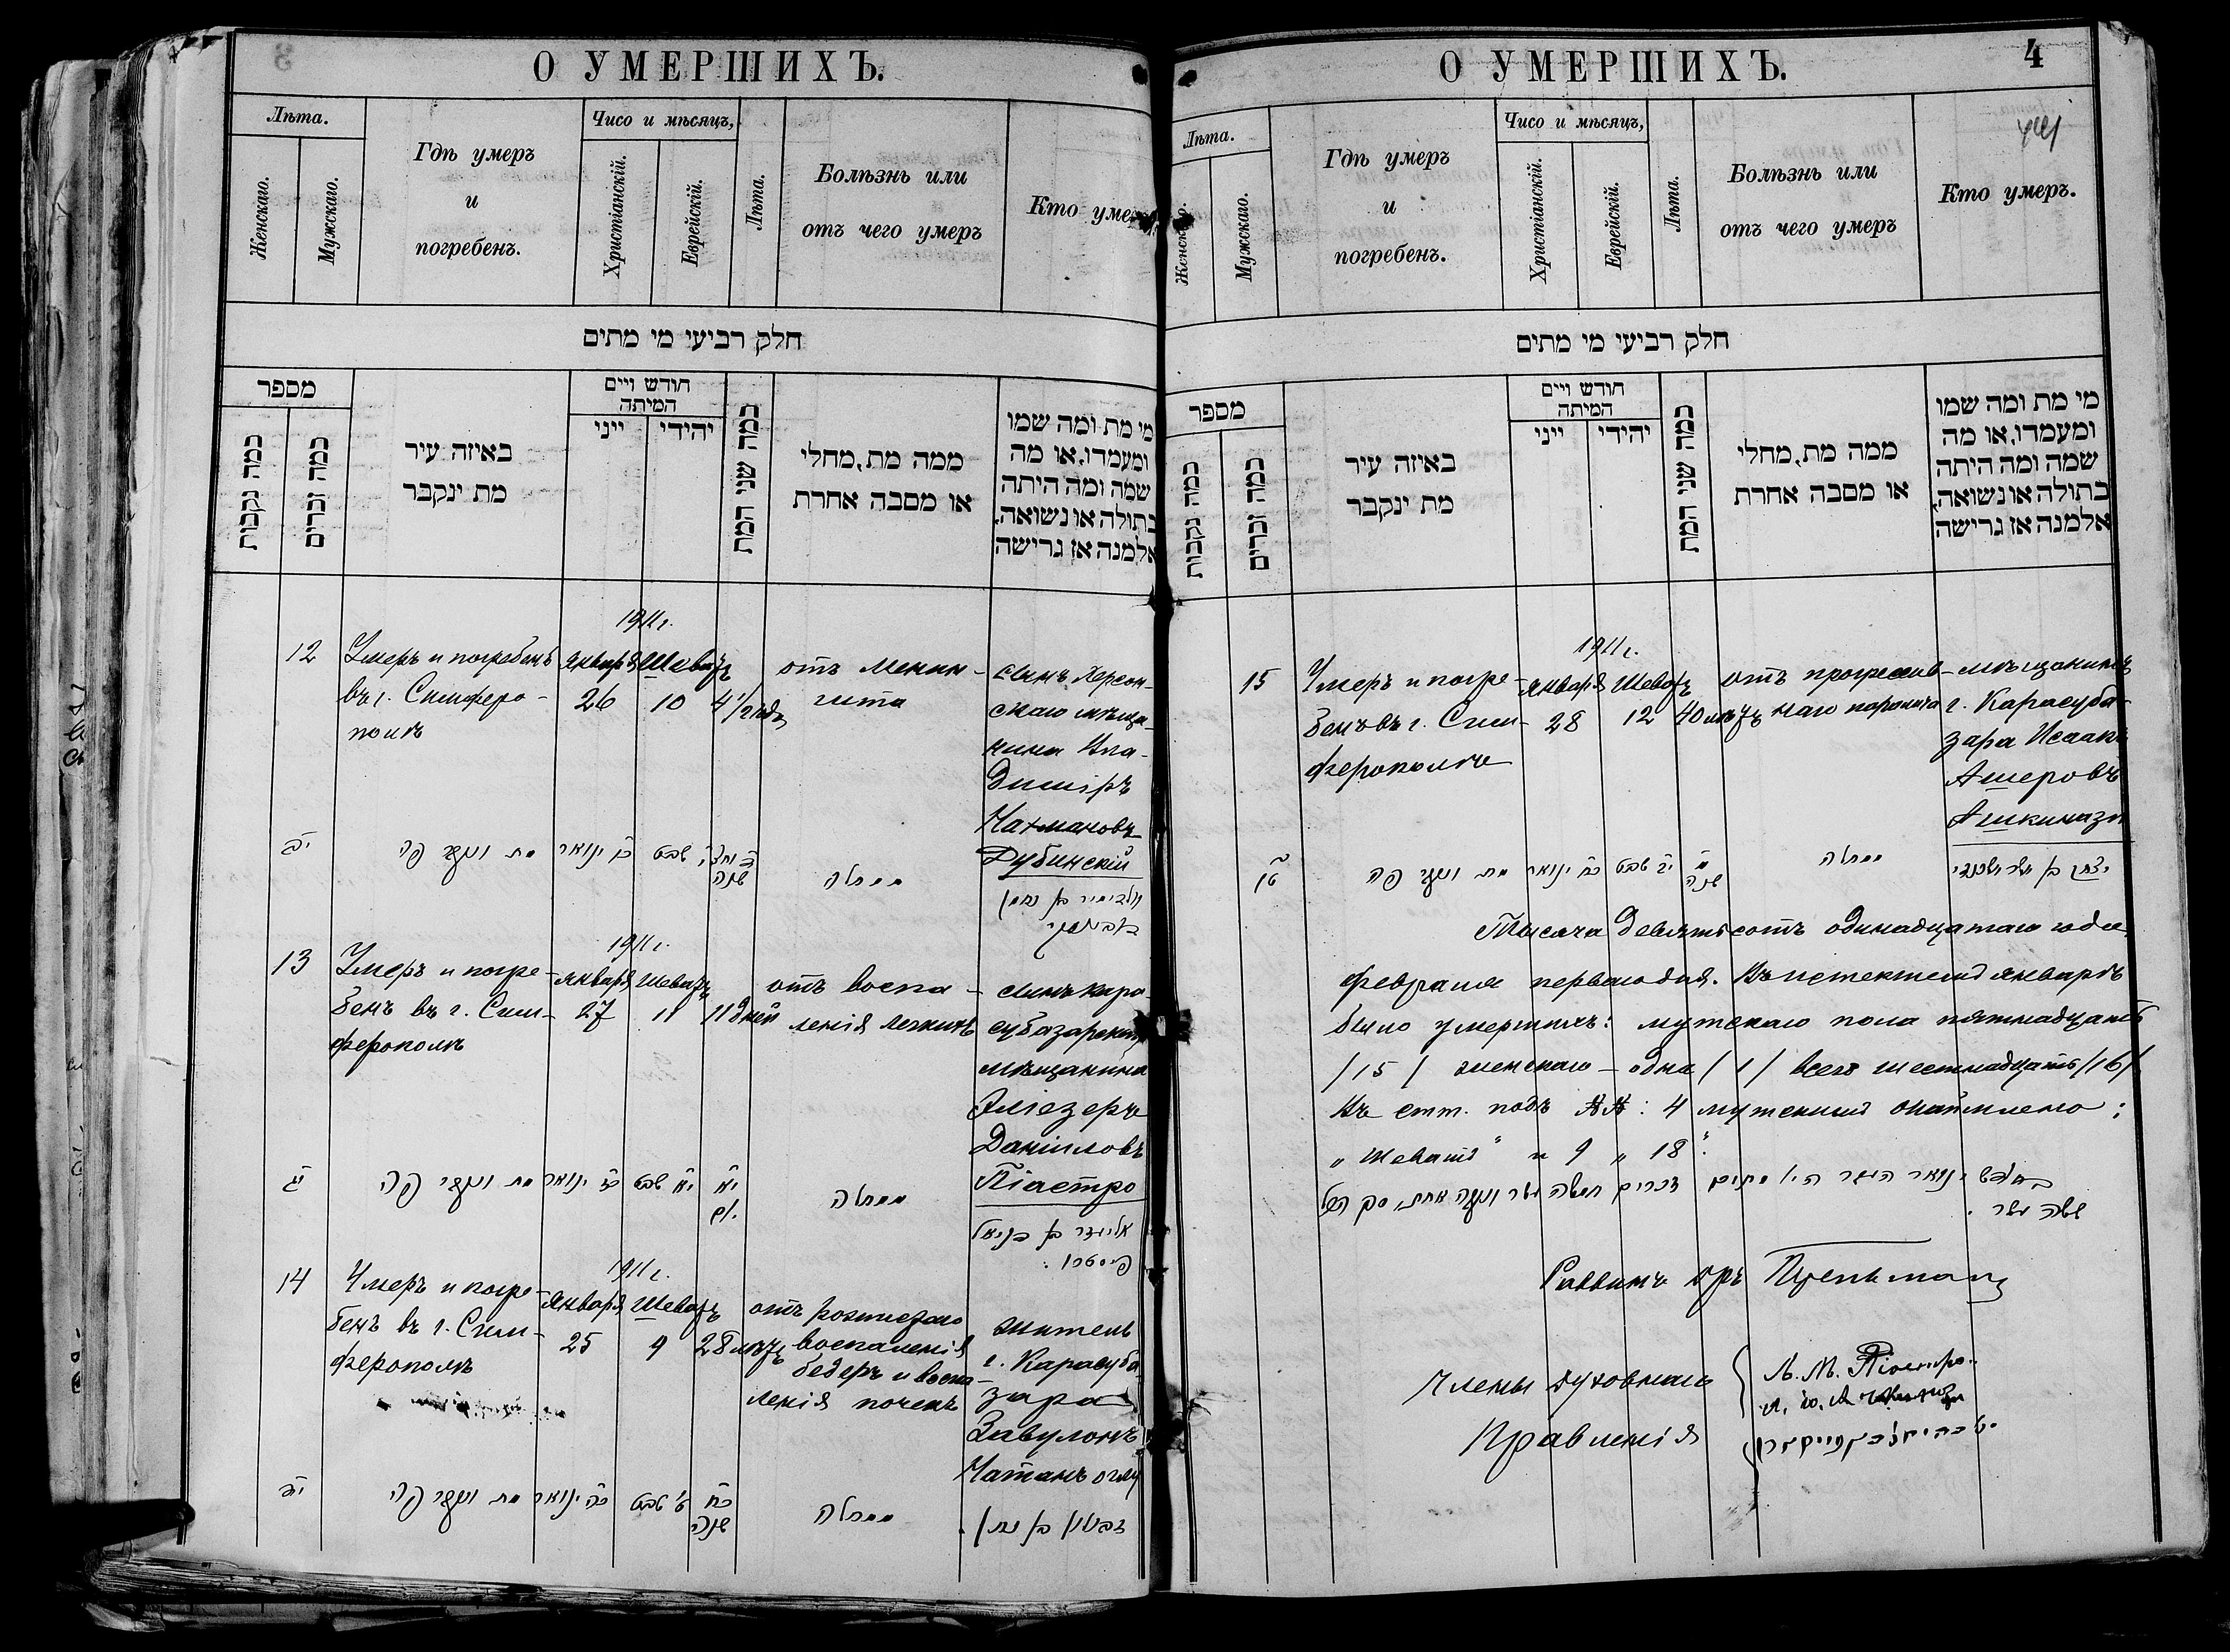 О УМЕРШИХЪ.
Лѣта.
Женскаго.
Мужскаго.
Гдѣ умеръ
и
погребенъ.
Чисо и мѣсяцъ,
Христіанскій.
Еврейскій.
Лѣта.
Болѣзнь или
отъ чего умеръ
Кто умеръ
חלק רביעי מי מתים
מספר
כמה נקבות
כמה זכרים
באיזה עיר
מת ינקבר
חודש ויים
המיתה
ייני
יהידי
כמה שני המת
ממה מת, מחלי
או מסבה אחרת
מי מת ומה שמו
ומעמדו, או מה
שמה ומה היתה
בתולה או נשואה,
אלמנה אז גרישה
12
Умеръ и погребенъ
въ г. Симферо-
полѣ
1911 г.
Января Шеватъ
26 10
4 1/2 года
отъ менин-
гита
сынъ Херсон-
скаго мѣща-
нина Вла-
диміръ
Нахмановъ
Дубинскій
יב
מת ונקבר פה
כו ינואר
י שבט
שנה
ממחלה
ולדימיר בן נחמן
דובינסקי
13
Умеръ и погре-
бенъ въ г. Сим-
ферополѣ
1911 г.
Января Шеватъ
27 11
11 дней
отъ воспа-
ленія легкихъ
сынъ Кара-
субазарскаго
мѣщанина
Эліезеръ
Даниловъ
Піастро
יג
מת ונקבר פה
כז ינואר
יא שבט
יא
ממחלה
אליעזר בן דניאל
פיסטרו
14
Умеръ и погре-
бенъ въ г. Сим-
ферополѣ
1911 г.
Января Шеватъ
25 9
28 лѣтъ
отъ рожистаго
воспаленія
бедеръ и воспа-
ленія почекъ
житель
г. Карасуба-
зара
Завулонъ
Натанъ оглу
יד
מת ונקבר פה
כה ינואר
ט שבט
כח
שנה
ממחלה
זבולון בן נתן
О УМЕРШИХЪ.
4
Лѣта.
Женскаго.
Мужскаго.
Гдѣ умеръ
и
погребенъ.
Чисо и мѣсяцъ,
Христіанскій.
Еврейскій.
Лѣта.
Болѣзнь или
отъ чего умеръ
Кто умеръ.
חלק רביעי מי מתים
מספר
כמה נקבות
כמה זכרים
באיזה עיר
מת ינקבר
חודש ויים
המיתה
ייני
יהידי
כמה שני המת
ממה מת, מחלי
או מסבה אחרת
מי מת ומה שמו
ומעמדו, או מה
שמה ומה היתה
בתולה או נשואה,
אלמנה אז גרישה
15
Умеръ и погре-
бенъ въ г. Сим-
ферополѣ
1911 г.
Января Шеватъ
28 12
40 лѣтъ
отъ прогрессив-
наго паралича
мѣщанинъ
г. Карасуба-
зара Исаакъ
Ашеровъ
Ашкинази
טו
מת ונקבר פה
כח ינואר
יב שבט
מ
שנה
ממחלה
יצחק בן אשר אשכנזי
Тысяча девятьсотъ одинадцатаго года
февраля перваго дня. Въ истекшемъ январѣ
было умершихъ: мужскаго пола пятнадцать
/15/ женскаго – одна /1/ всего шестнадцать /16/
Въ ст. подъ №№: 4 мужскимъ
„Шеватъ" и 9 „ 18".
בחודש ינואר העבר היו מתים זכרים חמשה עשר ונקבה אחת, סך הכל
ששה עשר.
Раввинъ Дръ
Члены духовнаго
Правленія